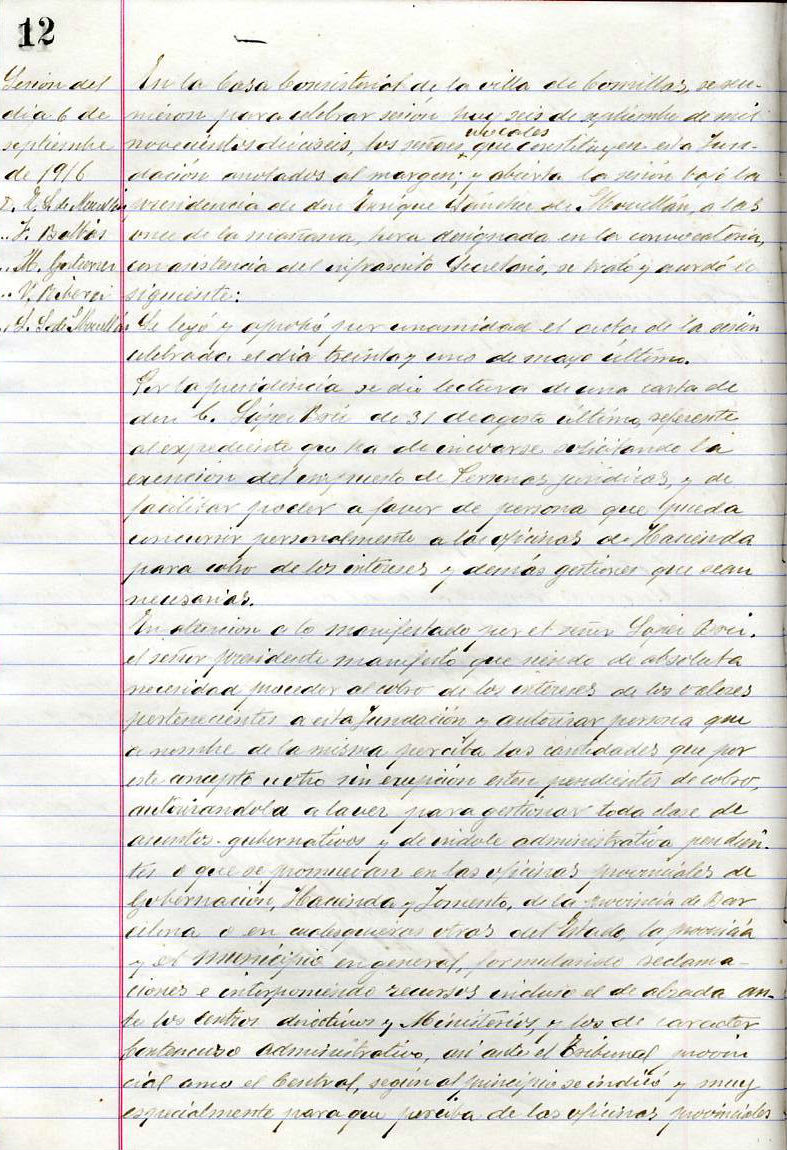 12
Sesión del
dia 6 de
septiembre
de 1916
D. E. S. de Movellán
" F. Ballás
" M. Gutierrez
" V. Ribero
" S. S. de Movellán
En la Casa Consistorial de la villa de Comillas, se reu-
nieron para celebrar sesión hoy seis de septiembre de mil
novecientos dieciseis, los señores vocales que constituyen esta Fun-
dación anotados al margen; y abierta la sesión bajo la
presidencia de don Enrique Sánchez de Movellán, a las
once de la mañana, hora designada en la convocatoria,
con asistencia del infrascrito Secretario, se trató y acordó lo
siguiente:
Se leyó y aprobó por unamidad el acta de la sesión
celebrada el dia treinta y uno de mayo último.
Por la presidencia se dio lectura de una carta de
don C. López Bru de 31 de agosto último, referente
al expediente que ha de incoarse solicitando la
exención del impuesto de Personas jurídicas, y de
facilitar poder a favor de persona que pueda
concurrir personalmente a las oficinas de Hacienda
para cobro de los intereses y demás gestiones que sean
necesarias.
En atencion a lo manifestado por el señor López Bru,
el señor presidente manifestó que siendo de absoluta
necesidad proceder al cobro de los intereses de los valores
pertenecientes a esta Fundación y autorizar persona que
a nombre de la misma perciba las cantidades que por
este concepto u otro sin excepción esten pendientes de cobro,
autorizándola a la vez para gestionar toda clase de
asuntos gubernativos y de indole administrativa pendien-
tes o que se promuevan en las oficinas provinciales de
Gobernación, Hacienda y Fomento, de la provincia de Bar
celona o en cualesquieras otras del Estado, la provincia
y el municipio en general, formulando reclama-
ciones e interponiendo recursos incluso el de alzada an-
te los centros directivos y Ministerios, y los de caracter
Contencioso administrativo, asi ante el Tribunal provin
cial como el Central, según al principio se indicó y muy
especialmente para que perciba de las oficinas provinciales